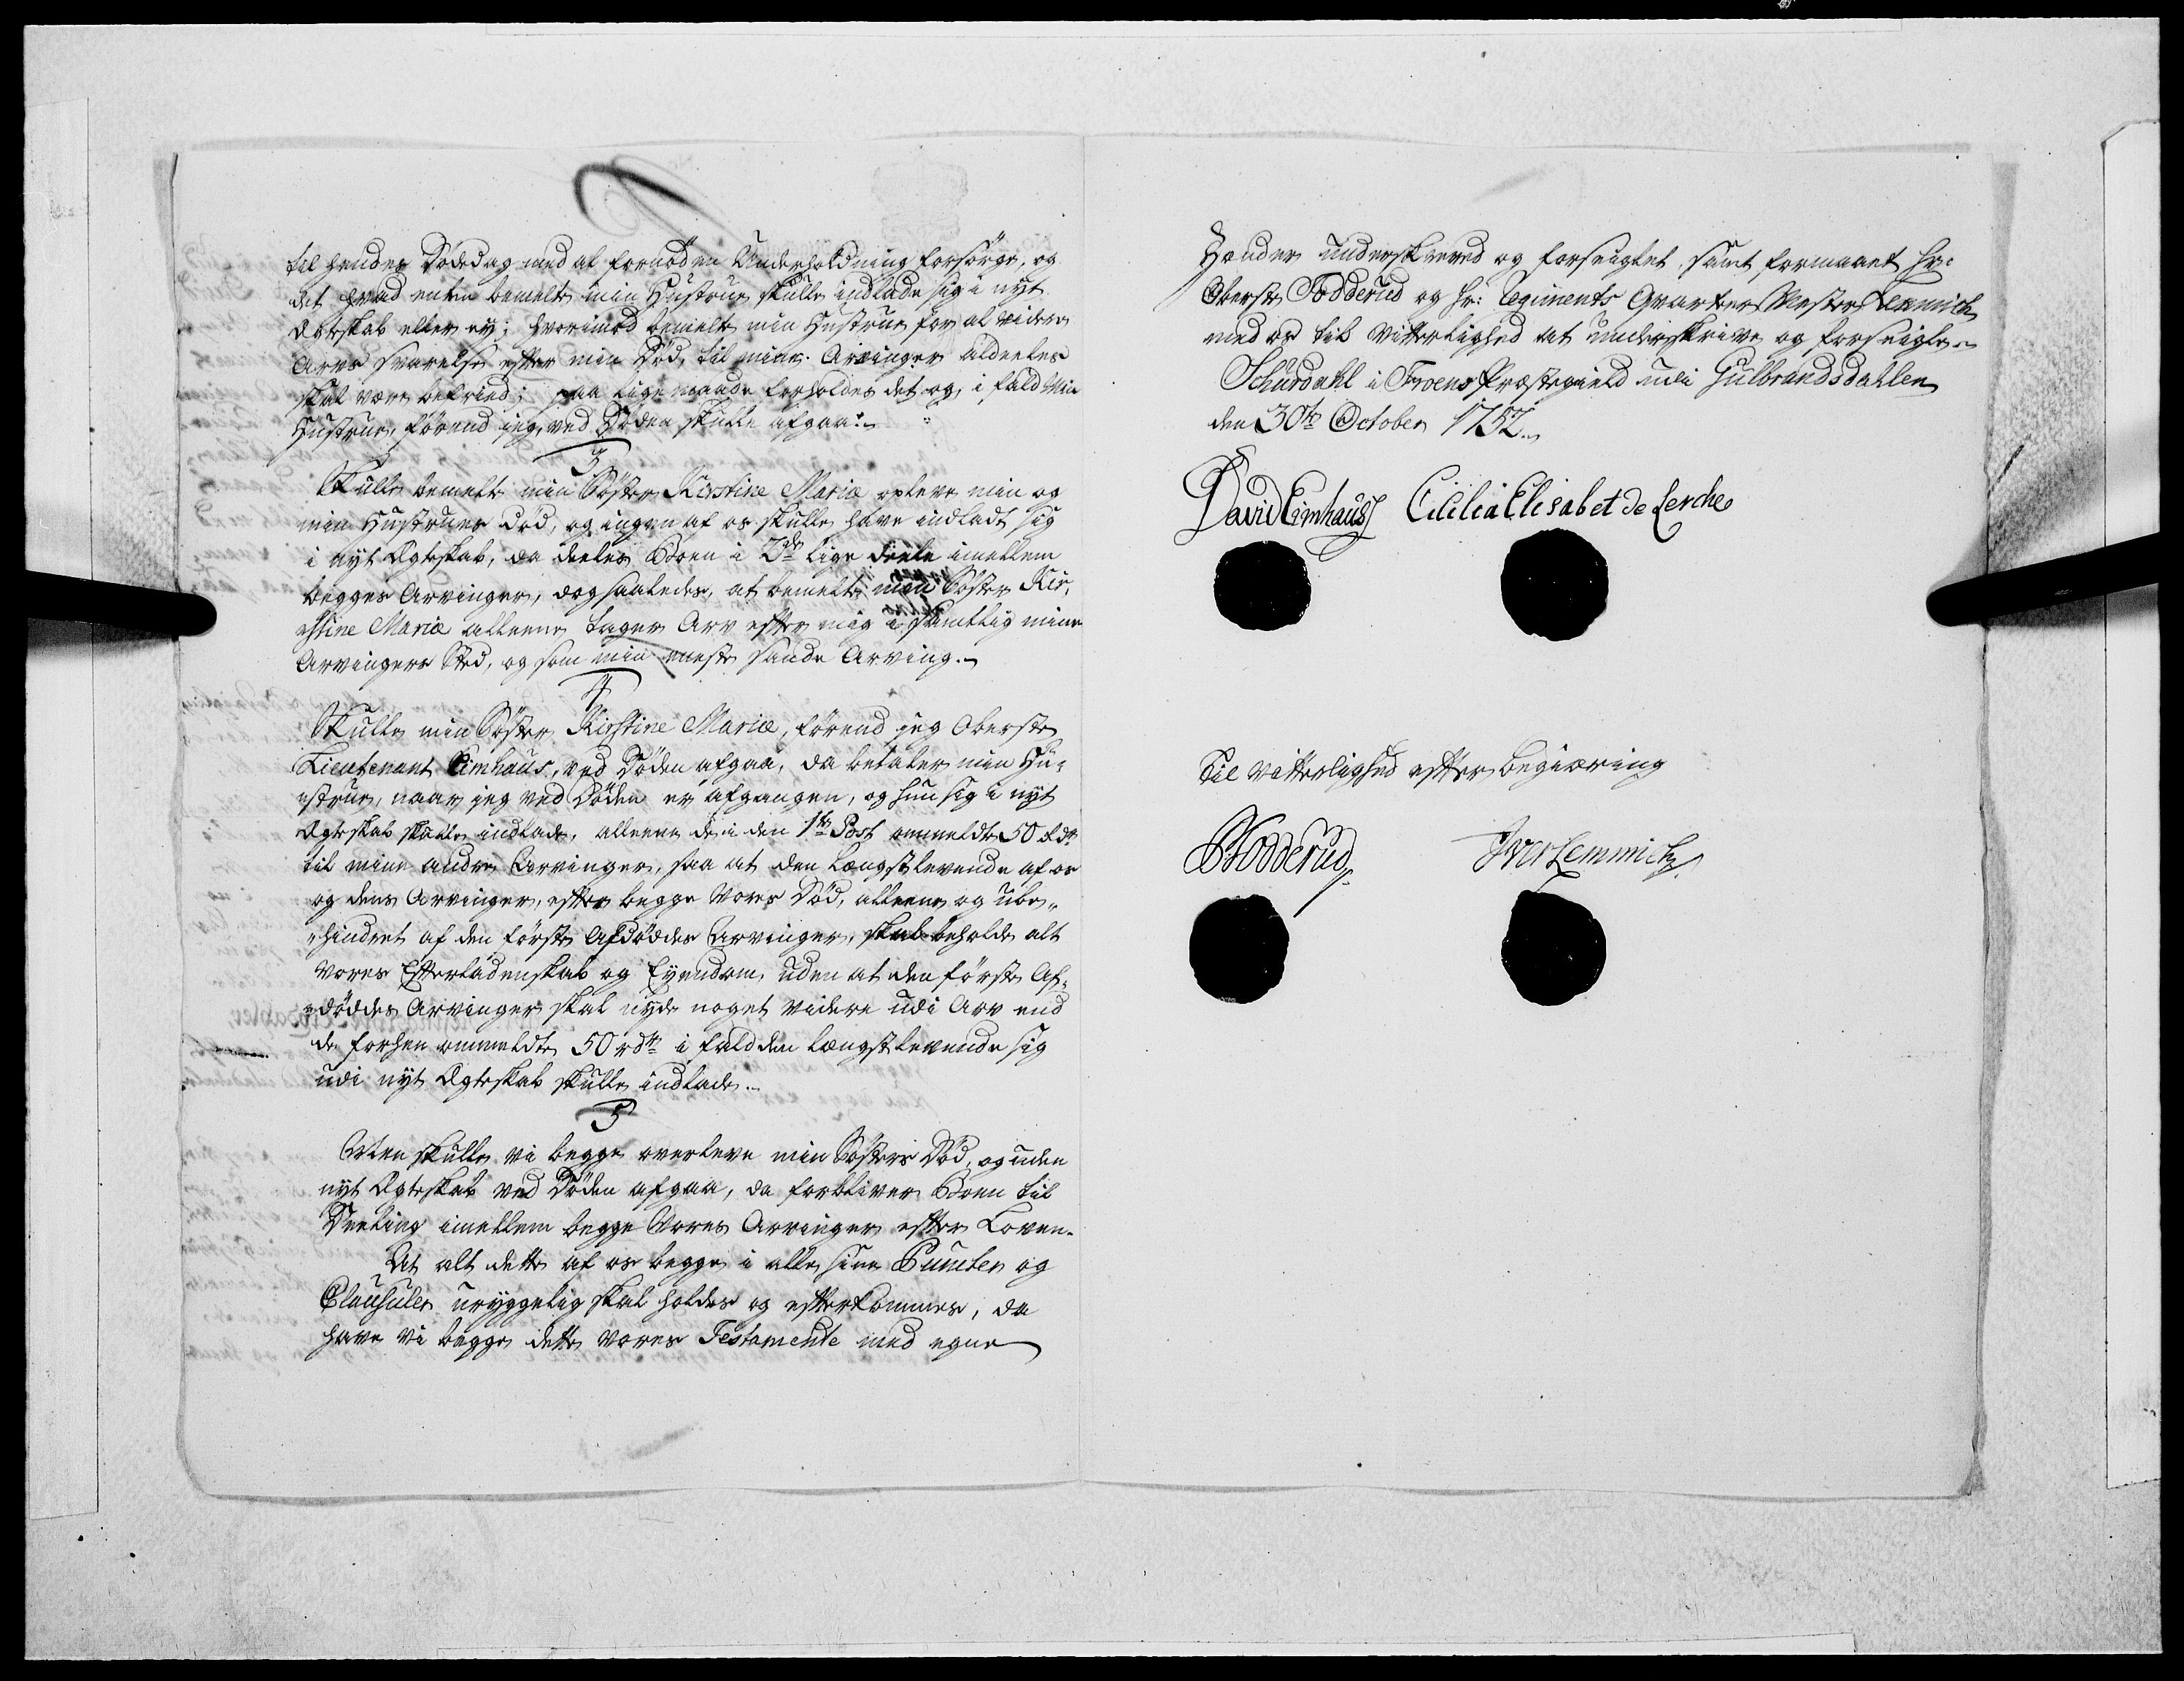 til hendes Dødedag med al fornøden Underholdning forsørge, og
det hvad enten bemelte min Hustrue skulle indlade sig i nyt
Egteskab eller ey; hvorimod bemelte min Hustrue for al videre
Arvs svarelse efter min Død, til mine Arvinger aldeeles
skal være befried; paa lige maade forholdes det og, i fald Min
Hustrue, førend jeg, ved Døden skulle afgaae.
3
Skulle bemelte min Søster Kirstine Maria opleve min og
min Hustrues Død, og ingen af os skulle have indladt sig
i nyt Egteskab, da deeles Boen i 2de lige deele imellem
begges Arvinger, dog saaledes, at bemelte min Søster Kir,
stine Maria alleene tager Arv efter mig i samtlig mine
Arvingers Sted, og som min eneste sande Arving.
4
Skulle min Søster Kirstine Maria, førend jeg Oberste
Lieutenant Eimhaus, ved Døden afgaa, da betaler min Hu-
strue, naar jeg ved Døden er afgangen, og hun sig i nyt
Egteskab skulle indlade, alleene de i den 1te Post ommeldte 50 rdr
til mine andre Arvinger, saa at den længstlevende af os
og dens Arvinger, efter begge vores Død, alleene og ube-
hindret af den første Afdøddes Arvinger, skal beholde alt
vores Efterladenskab og Eyendom, uden at den første Af-
døddes Arvinger skal nyde noget videre udi Arv end
de forhen ommeldte 50 rdr i fald den længstlevende sig
udi nyt Egteskab skulle indlade.
5
Men skulle vi begge overleve min Søsters Død, og uden
nyt Egteskab ved Døden afgaa, da forbliver Boen til
Deeling imellem begge Vores Arvinger efter Loven.
At alt dette af os begge i alle sine Puncter og
Clausuler uryggelig skal holdes og efterkommes, da
have vi begge dette vores Testamente med egne
Hænder underskreved og forseiglet, samt formaaet Hr:
Oberste Fodderud og Hr: Regiments Qvarteer Mester Lemmich
med os til Vitterlighed at underskrive og forseigle.
Schurdahl i Froens Præstegield udi Gulbrandsdahlen
den 30te October 1752.
David Eimhaus Cicilia Elisabet de Lerche
Til vitterlighed efter begiæring
Fodderud Iver Lemmich